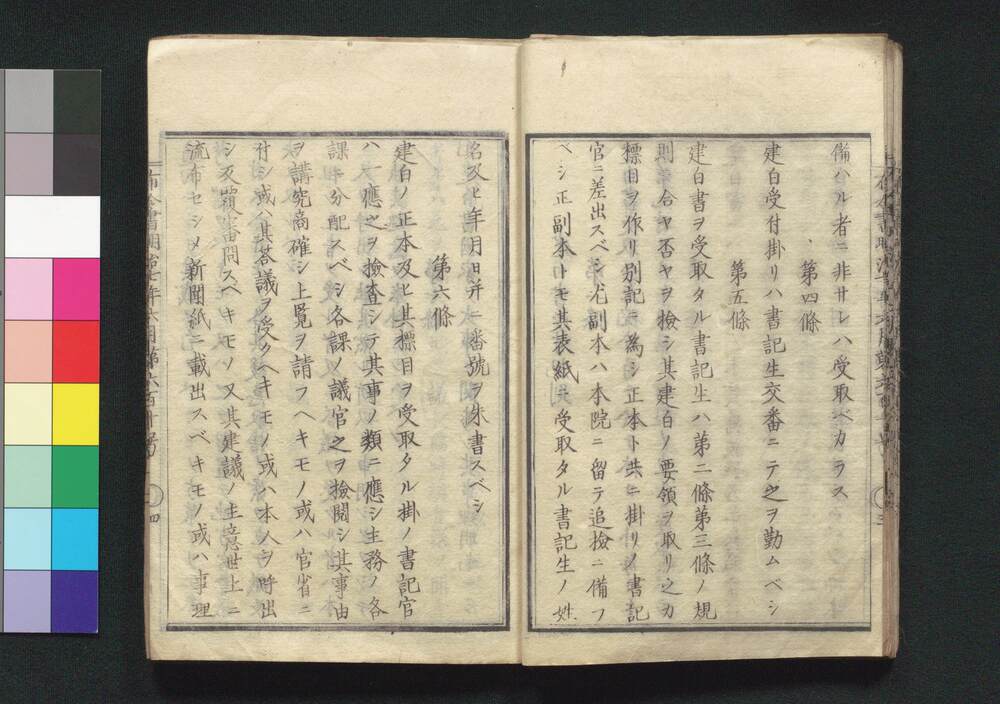 備ハル者ニ非サレハ受取ベカラス
第四條
建白受付掛リハ書記生交番ニテ之ヲ勤ムベシ
第五條
建白書ヲ受取タル書記生ハ第二條第三條ノ規
則ニ合ヤ否ヤヲ檢シ其建白ノ要領ヲ取リ之カ
標目ヲ作リ別記ニ為シ正本ト共ニ掛リノ書記
官ニ差出スベシ尤副本ハ本院ニ留テ追檢ニ備フ
ベシ正副本トモ其表紙ヘ受取タル書記生ノ姓
名及ヒ年月日并ニ番號ヲ朱書スベシ
第六條
建白ノ正本及ヒ其標目ヲ受取タル掛ノ書記官
ハ一應之ヲ檢査シテ其事ノ類ニ應シ生務ノ各
課ニ分配スベシ各課ノ議官之ヲ檢閲シ其事由
ヲ講究商確シ上覧ヲ請フヘキモノ或ハ官省ニ
付シ或ハ其答議ヲ受クヘキモノ或ハ本人ヲ呼出
シ反覆審問スベキモノ又其建議ノ主意世上ニ
流布セシメ新聞紙ニ載出スベキモノ或ハ事理
布令書明治七年六月第六百廿号
四